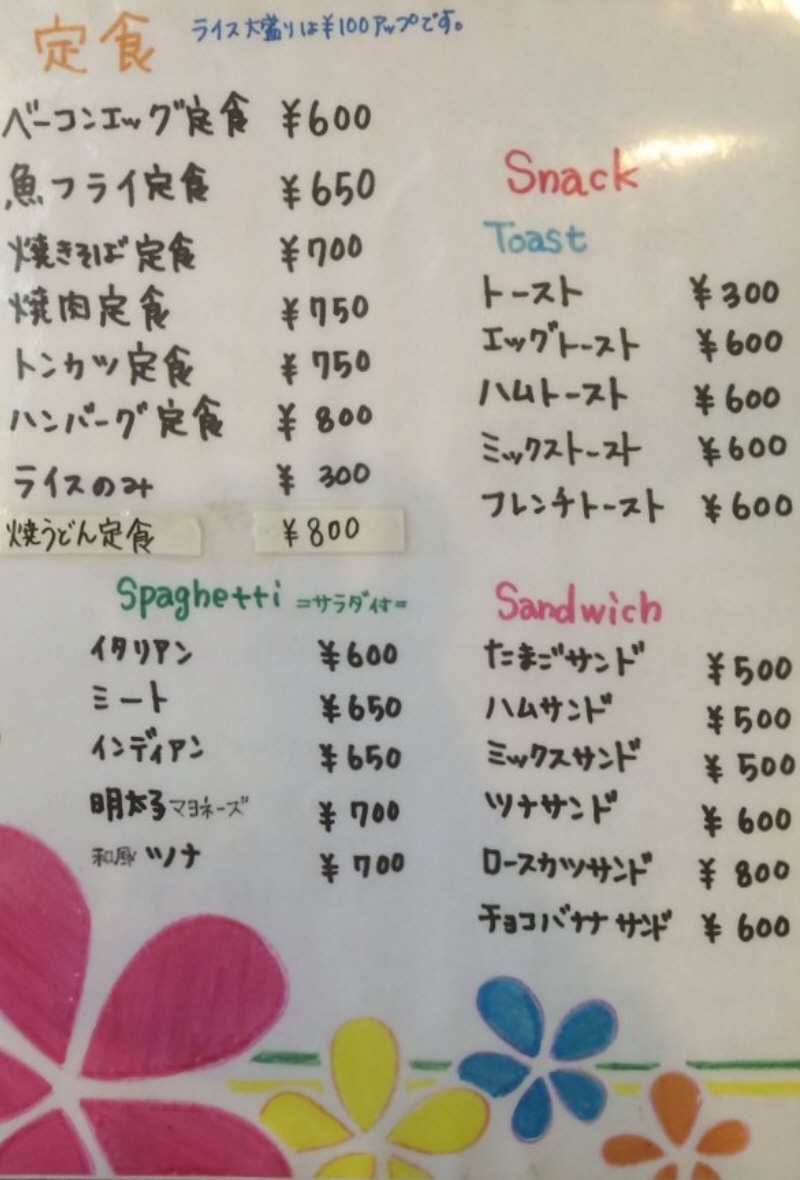 定食 ライス大盛りは¥100アップです。
ベーコンエッグ定食 ¥600
魚フライ定食 ¥650
焼きそば定食 ¥700
焼肉定食 ¥750
トンカツ定食 ¥750
ハンバーグ定食 ¥800
ライスのみ ¥300
焼うどん定食 ¥800
Spaghetti =サラダ付=
イタリアン ¥600
ミート ¥650
インディアン ¥650
明太子マヨネーズ ¥700
和風ツナ ¥700
Snack
Toast
トースト ¥300
エッグトースト ¥600
ハムトースト ¥600
ミックストースト ¥600
フレンチトースト ¥600
Sandwich
たまごサンド ¥500
ハムサンド ¥500
ミックスサンド ¥500
ツナサンド ¥600
ロースカツサンド ¥800
チョコバナナサンド ¥600